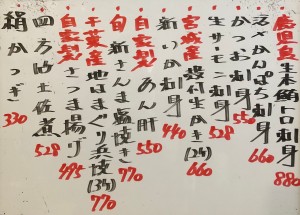 鹿児島 生本鮪トロ刺身 880
活〆かんぱち刺身 660
かつお刺身 550
サーモン刺身 528
宮城産 殻付生かき(2ヶ) 660
新いか刺身 440
自家製 あん肝 550
旬 新さんま塩焼き 770
千葉産 地はまぐり浜焼(3ヶ) 770
自家製 さつま揚げ 495
四方竹土佐煮 528
絹かつぎ 330